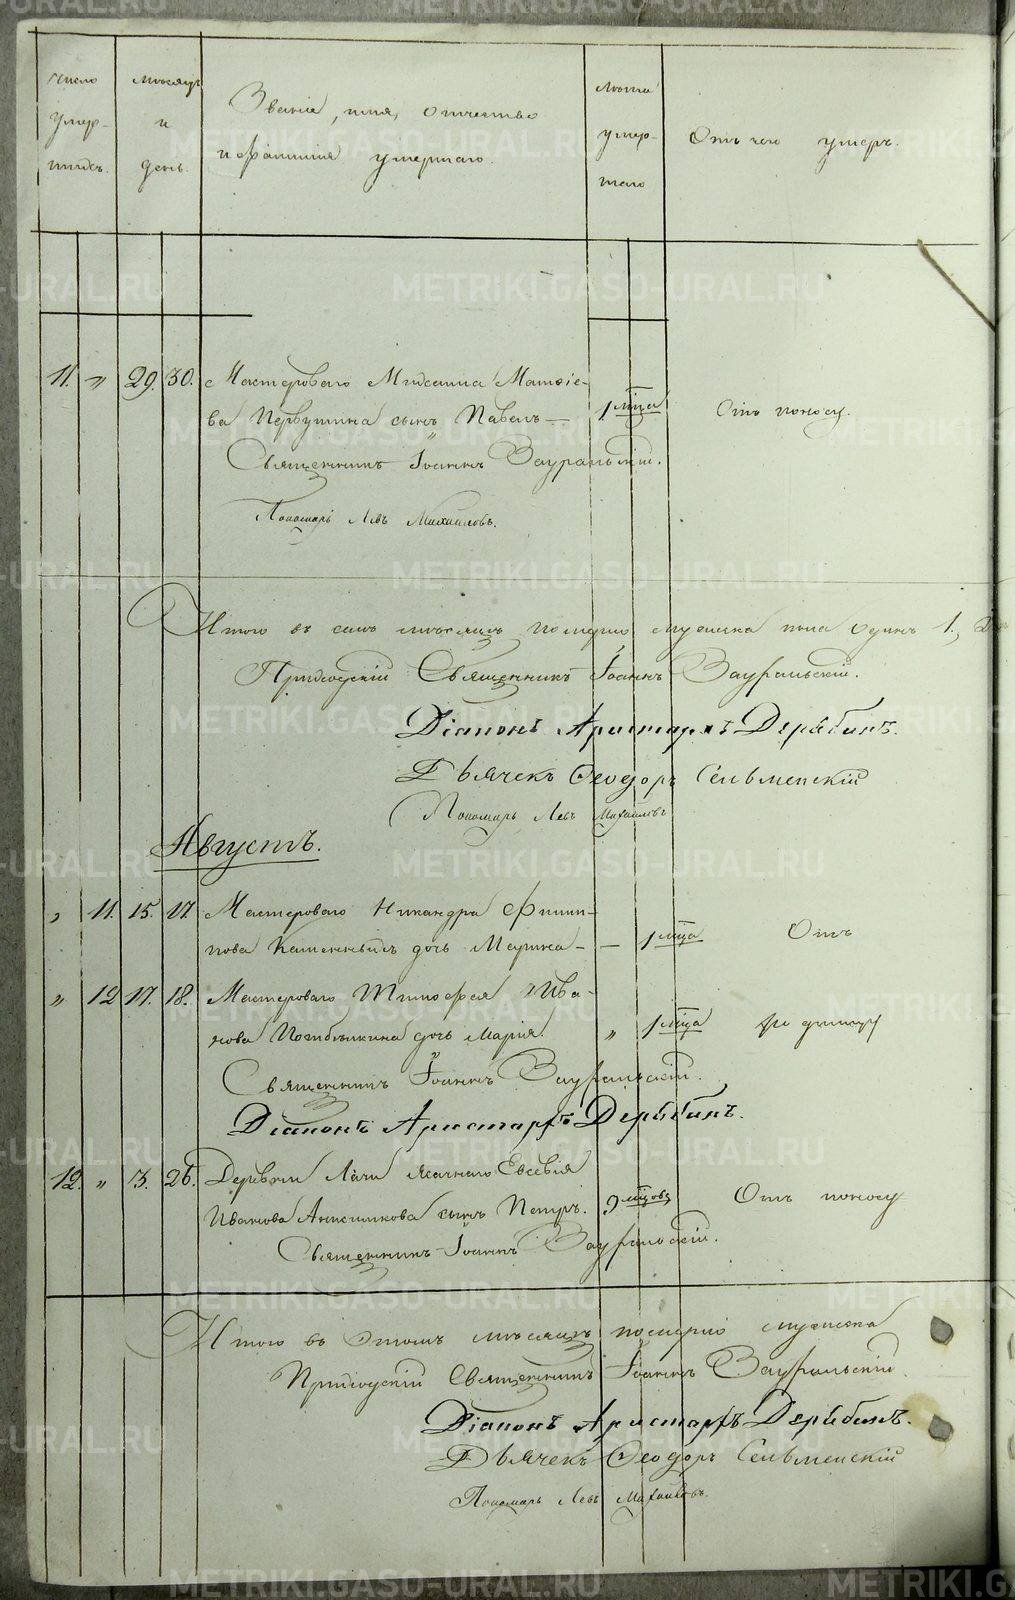 число умер- шихъ.
мѣсяцъ и день.
Званіе, имя, отчество
и фамилія умершаго.
лѣта умер- шаго
Отъ чего умеръ.
11. „ 29. 30. Мастероваго Михаила Матвіе-
ва Первушина сынъ Павелъ — 1 мѣца Отъ поносу.
Священникъ Іоаннъ Зауральскій.
Пономарь Левъ Михайловъ.
Итого въ семъ мѣсяцѣ померло мужеска пола одинъ 1.,
Приходскій Священникъ Іоаннъ Зауральскій.
Діаконъ Аристархъ Дерябинъ.
Дьячекъ Ѳеодоръ Сельменскій
Пономарь Левъ Михайловъ
Августъ.
„ 11. 15. 17. Мастероваго Никандра Филип-
пова дочь Марина — — 1 мѣца Отъ
„ 12 17. 18. Мастероваго Тимофея Ива-
нова дочь Марія. „ 1 мѣца
Священникъ Іоаннъ Зауральскій.
Діаконъ Аристархъ Дерябинъ.
12. „ 3. 26. Деревни Евсевія
Иванова Анисимкова сынъ Петръ. 9 мѣцовъ Отъ поносу
Священникъ Іоаннъ Зауральскій.
Итого въ этомъ мѣсяцѣ померло мужеска
Приходскій Священникъ Іоаннъ Зауральскій.
Діаконъ Аристархъ Дерябинъ.
Дьячекъ Ѳеодоръ Сельменскій
Пономарь Левъ Михайловъ.
METRIKI.GASO-URAL.RU